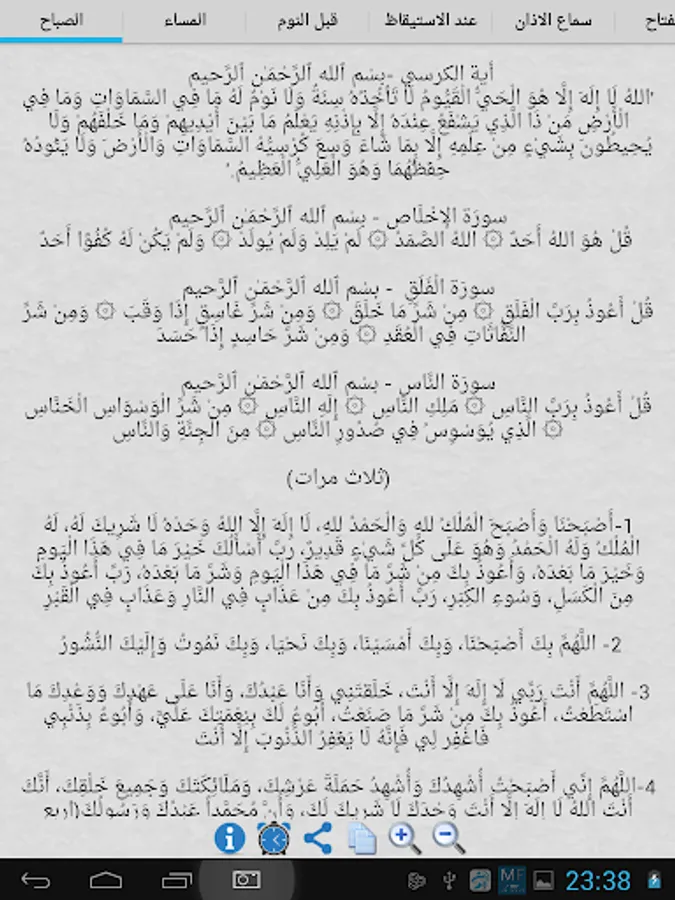 الصباح المساء قبل النوم عند الاستيقاظ سماع الاذان
أية الكرسي -بِسْمِ ٱللهِ ٱلرَّحْمَٰنِ ٱلرَّحِيمِ
'اللهُ لَا إِلَهَ إِلَّا هُوَ الْحَيُّ الْقَيُّومُ لَا تَأْخُذُهُ سِنَةٌ وَلَا نَوْمٌ لَهُ مَا فِي السَّمَاوَاتِ وَمَا فِي
الْأَرْضِ مَنْ ذَا الَّذِي يَشْفَعُ عِنْدَهُ إِلَّا بِإِذْنِهِ يَعْلَمُ مَا بَيْنَ أَيْدِيهِمْ وَمَا خَلْفَهُمْ وَلَا
يُحِيطُونَ بِشَيْءٍ مِنْ عِلْمِهِ إِلَّا بِمَا شَاءَ وَسِعَ كُرْسِيُّهُ السَّمَاوَاتِ وَالْأَرْضَ وَلَا يَئُودُهُ
حِفْظُهُمَا وَهُوَ الْعَلِيُّ الْعَظِيمُ.'
سورة الإخْلَاص - بِسْمِ ٱللهِ ٱلرَّحْمَٰنِ ٱلرَّحِيمِ
قُلْ هُوَ اللهُ أَحَدٌ ۞ اللهُ الصَّمَدُ ۞ لَمْ يَلِدْ وَلَمْ يُولَدْ ۞ وَلَمْ يَكُنْ لَهُ كُفُوًا أَحَدٌ
سورَة الْفَلَقِ - بِسْمِ ٱللهِ ٱلرَّحْمَٰنِ ٱلرَّحِيمِ
قُلْ أَعُوذُ بِرَبِّ الْفَلَقِ ۞ مِنْ شَرِّ مَا خَلَقَ ۞ وَمِنْ شَرِّ غَاسِقٍ إِذَا وَقَبَ ۞ وَمِنْ شَرِّ
النَّفَّاثَاتِ فِي الْعُقَدِ ۞ وَمِنْ شَرِّ حَاسِدٍ إِذَا حَسَدَ
سورة النَّاسِ - بِسْمِ ٱللهِ ٱلرَّحْمَٰنِ ٱلرَّحِيمِ
قُلْ أَعُوذُ بِرَبِّ النَّاسِ ۞ مَلِكِ النَّاسِ ۞ إِلَهِ النَّاسِ ۞ مِنْ شَرِّ الْوَسْوَاسِ الْخَنَّاسِ
۞ الَّذِي يُوَسْوِسُ فِي صُدُورِ النَّاسِ ۞ مِنَ الْجِنَّةِ وَالنَّاسِ
(ثلاث مرات)
1-أَصْبَحْنَا وَأَصْبَحَ الْمُلْكُ للهِ وَالْحَمْدُ للهِ، لَا إِلَهَ إِلَّا اللهُ وَحْدَهُ لَا شَرِيكَ لَهُ، لَهُ
الْمُلْكُ وَلَهُ الْحَمْدُ وَهُوَ عَلَى كُلِّ شَيْءٍ قَدِيرٌ، رَبِّ أَسْأَلُكَ خَيْرَ مَا فِي هَذَا الْيَوْمِ
وَخَيْرَ مَا بَعْدَهُ، وَأَعُوذُ بِكَ مِنْ شَرِّ مَا فِي هَذَا الْيَوْمِ وَشَرِّ مَا بَعْدَهُ، رَبِّ أَعُوذُ بِكَ
مِنَ الْكَسَلِ، وَسُوءِ الْكِبَرِ، رَبِّ أَعُوذُ بِكَ مِنْ عَذَابٍ فِي النَّارِ وَعَذَابٍ فِي الْقَبْرِ
2- اللَّهُمَّ بِكَ أَصْبَحْنَا، وَبِكَ أَمْسَيْنَا، وَبِكَ نَحْيَا، وَبِكَ نَمُوتُ وَإِلَيْكَ النُّشُورُ
3- اللَّهُمَّ أَنْتَ رَبِّي لَا إِلَهَ إِلَّا أَنْتَ، خَلَقْتَنِي وَأَنَا عَبْدُكَ، وَأَنَا عَلَى عَهْدِكَ وَوَعْدِكَ مَا
اسْتَطَعْتُ، أَعُوذُ بِكَ مِنْ شَرِّ مَا صَنَعْتُ، أَبُوءُ لَكَ بِنِعْمَتِكَ عَلَيَّ، وَأَبُوءُ بِذَنْبِي
فَاغْفِرْ لِي فَإِنَّهُ لَا يَغْفِرُ الذُّنُوبَ إِلَّا أَنْتَ
4-اللَّهُمَّ إِنِّي أَصْبَحْتُ أُشْهِدُكَ وَأُشْهِدُ حَمَلَةَ عَرْشِكَ، وَمَلَائِكَتَكَ وَجَمِيعَ خَلْقِكَ، أَنَّكَ
أَنْتَ اللهُ لَا إِلَهَ إِلَّا أَنْتَ وَحْدَكَ لَا شَرِيكَ لَكَ، وَأَنَّ مُحَمَّداً عَبْدُكَ وَرَسُولُكَ(اربع
MF 23:38